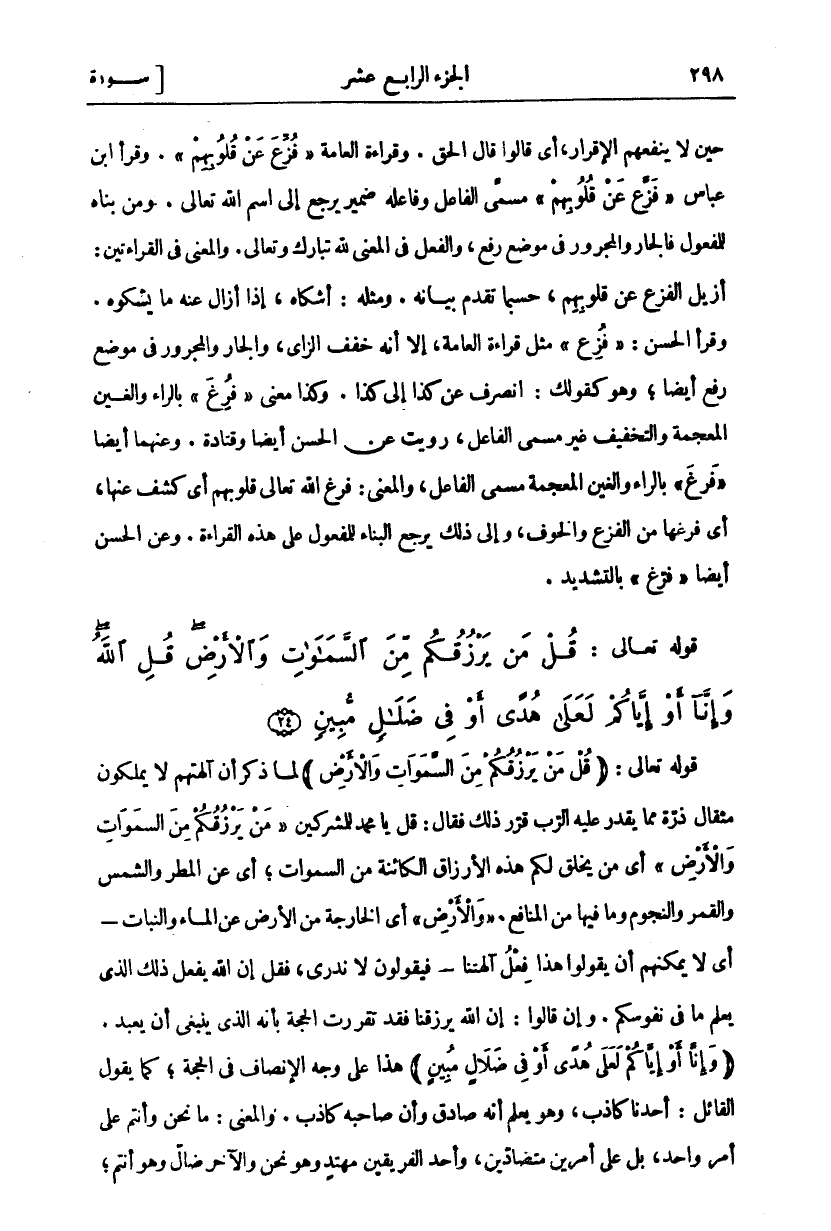 ٢٩٨ الجزء الرابع عشر [ ســورة
حين لا ينفعهم الإقرار، أى قالوا قال الحق . وقراءة العامة « فُزِّعَ عَنْ قُلُوبِهِمْ » . وقرأ ابن
عباس « فَزَّع عَنْ قُلُوبِهِمْ » مسمَّى الفاعل وفاعله ضمير يرجع إلى اسم الله تعالى . ومن بناه
للفعول فالجار والمجرور فى موضع رفع ، والفعل فى المعنى لله تبارك وتعالى. والمعنى فى القراءتين :
أزيل الفزع عن قلوبهم ، حسبما تقدم بيــانه . ومثله : أشكاه ، إذا أزال عنه ما يشكوه .
وقرأ الحسن : « فُزِع » مثل قراءة العامة، إلا أنه خفف الزاى، والجار والمجرور فى موضع
رفع أيضا ؛ وهو كقولك : انصرف عن كذا إلى كذا . وكذا معنى « فُرِغَ » بالراء والغــين
المعجمة والتخفيف غير مسمى الفاعل ، رويت عن الحسن أيضا وقتادة . وعنهما أيضا
«فَرغَ» بالراء والغين المعجمة مسمى الفاعل ، والمعنى : فرغ الله تعالى قلوبهم أى كشف عنها،
أى فرغها من الفزع والخوف، وإلى ذلك يرجع البناء للفعول على هذه القراءة . وعن الحسن
أيضا « فرّغ » بالتشديد .
قوله تعــالى : قُلْ مَن يَرْزُقُكُم مِّنَ ٱلسَّمَـٰوَٰتِ وَٱلْأَرْضِۖ قُلِ ٱللَّهُۖ
وَإِنَّآ أَوْ إِيَّاكُمْ لَعَلَىٰ هُدًى أَوْ فِى ضَلَـٰلٍ مُّبِينٍ ﴿٢٤﴾
قوله تعالى : ﴿ قُلْ مَنْ يَرْزُقُكُمْ مِنَ السَّمَوَاتِ وَالْأَرْضِ ﴾ لمــا ذكر أن آلهتهم لا يملكون
مثقال ذرّة مما يقدر عليه الرّب قرّر ذلك فقال : قل يا محمد للمشركين « مَنْ يَرْزُقُكُمْ مِنَ السمَوَاتِ
وَالْأَرْضِ » أى من يخلق لكم هذه الأرزاق الكائنة من السموات ؛ أى عن المطر والشمس
والقمر والنجوم وما فيها من المنافع. «وَالْأَرْضِ» أى الخارجة من الأرض عن المــاء والنبات —
أى لا يمكنهم أن يقولوا هذا فِعْلُ آلهتنا — فيقولون لا ندرى، فقل إن الله يفعل ذلك الذى
يعلم ما فى نفوسكم . وإن قالوا : إن الله يرزقنا فقد تقررت الحجة بأنه الذى ينبغى أن يعبد .
﴿ وَإِنَّا أَوْ إِيَّاكُمْ لَعَلَى هُدًى أَوْ فِى ضَلَالٍ مُبِينٍ ﴾ هذا على وجه الإنصاف فى الحجة ؛ كما يقول
القائل : أحدنا كاذب ، وهو يعلم أنه صادق وأن صاحبه كاذب . والمعنى : ما نحن وأنتم على
أمر واحد، بل على أمرين متضادّين، وأحد الفريقين مهتدٍ وهو نحن والآخر ضالّ وهو أنتم ؛